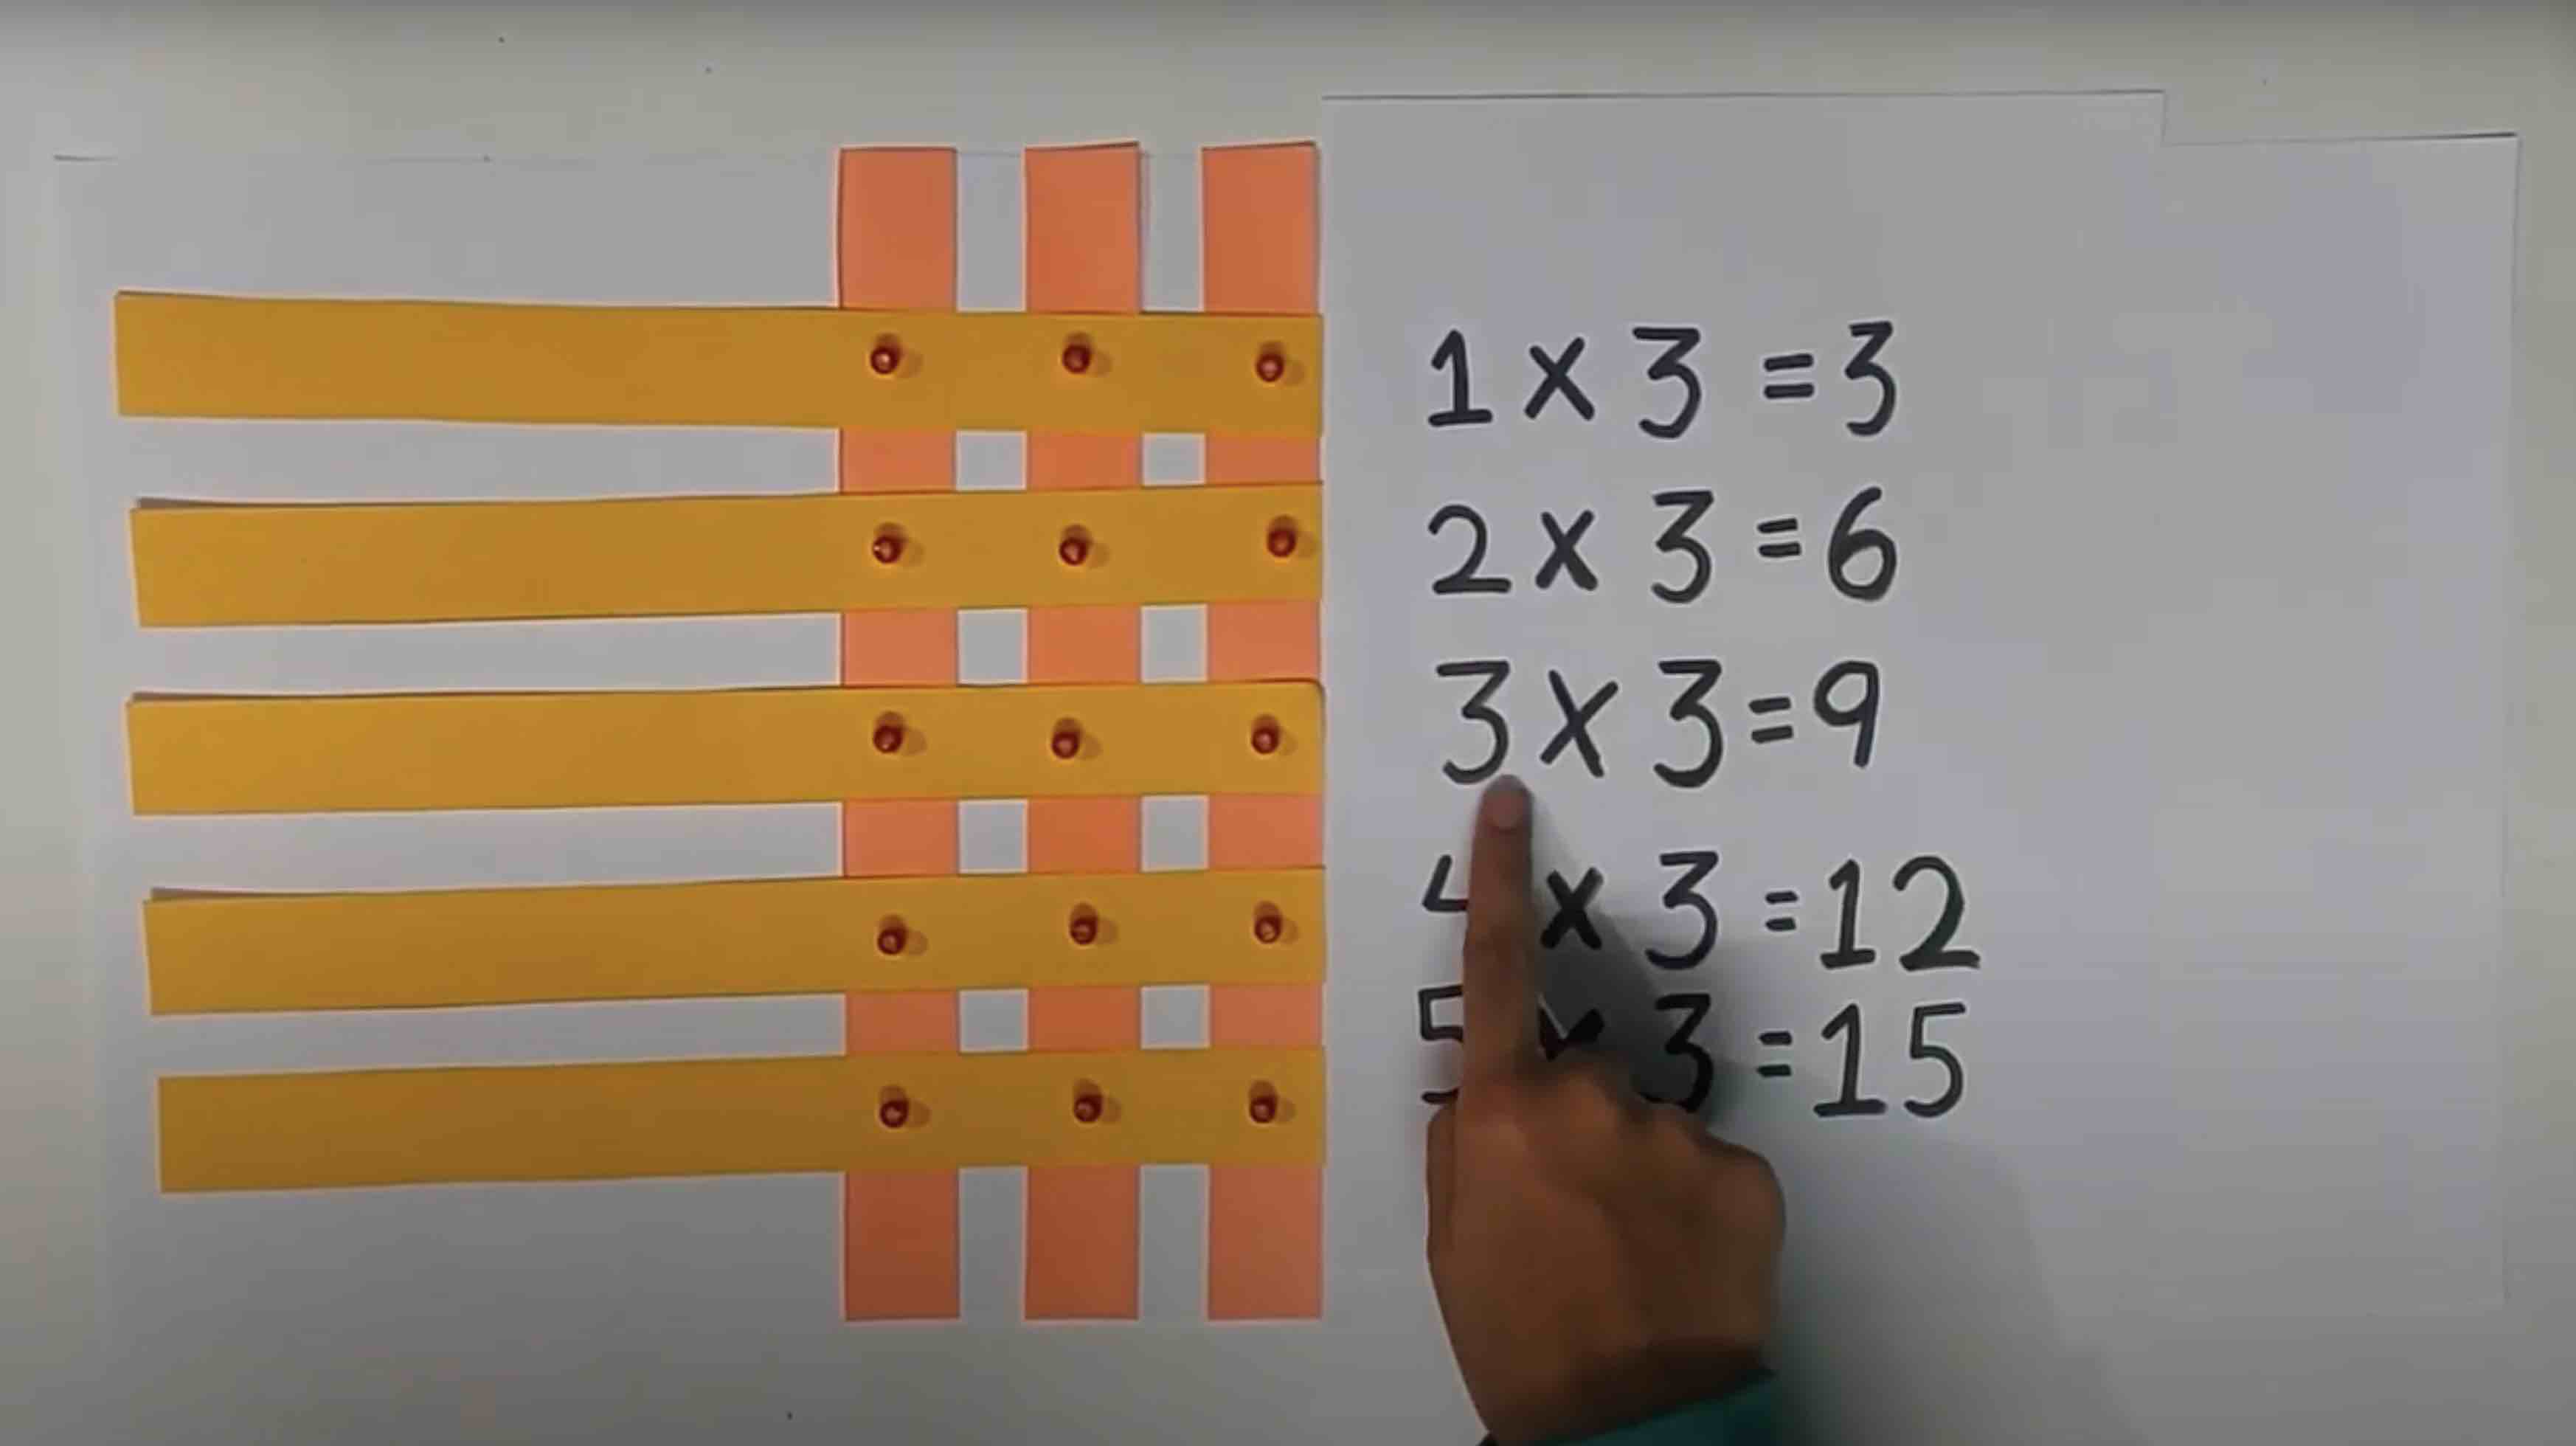 1 × 3 = 3
2 × 3 = 6
3 × 3 = 9
4 × 3 = 12
5 × 3 = 15